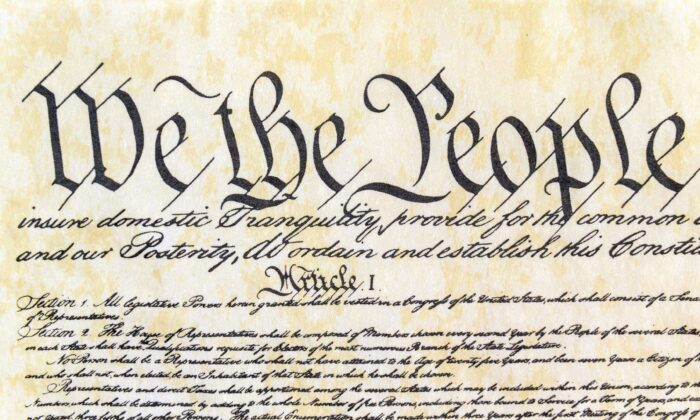 We the People
insure domestic Tranquility, provide for the common
and our Posterity, do ordain and establish this Constit
Article I.
Section 1. All legislative Powers herein granted shall be vested in a Congress of the United States, which shall consist of a Sena
of Representatives.
Section 2. The House of Representatives shall be composed of Members chosen every second Year by the People of the several States
in each State shall have Qualifications requisite for Electors of the most numerous Branch of the State Legislature.
No Person shall be a Representative who shall not have attained to the Age of twenty five Years, and been seven Years a Citizen of
and who shall not, when elected, be an Inhabitant of that State in which he shall be chosen.
Representatives and direct Taxes shall be apportioned among the several States which may be included within this Union, according to
Number, which shall be determined by adding to the whole Number of free Persons, including those bound to Service for a Term of Years, and
not taxed, three fifths of all other Persons. The actual Enumeration shall be made within three Years after the first Meeting of the Congress